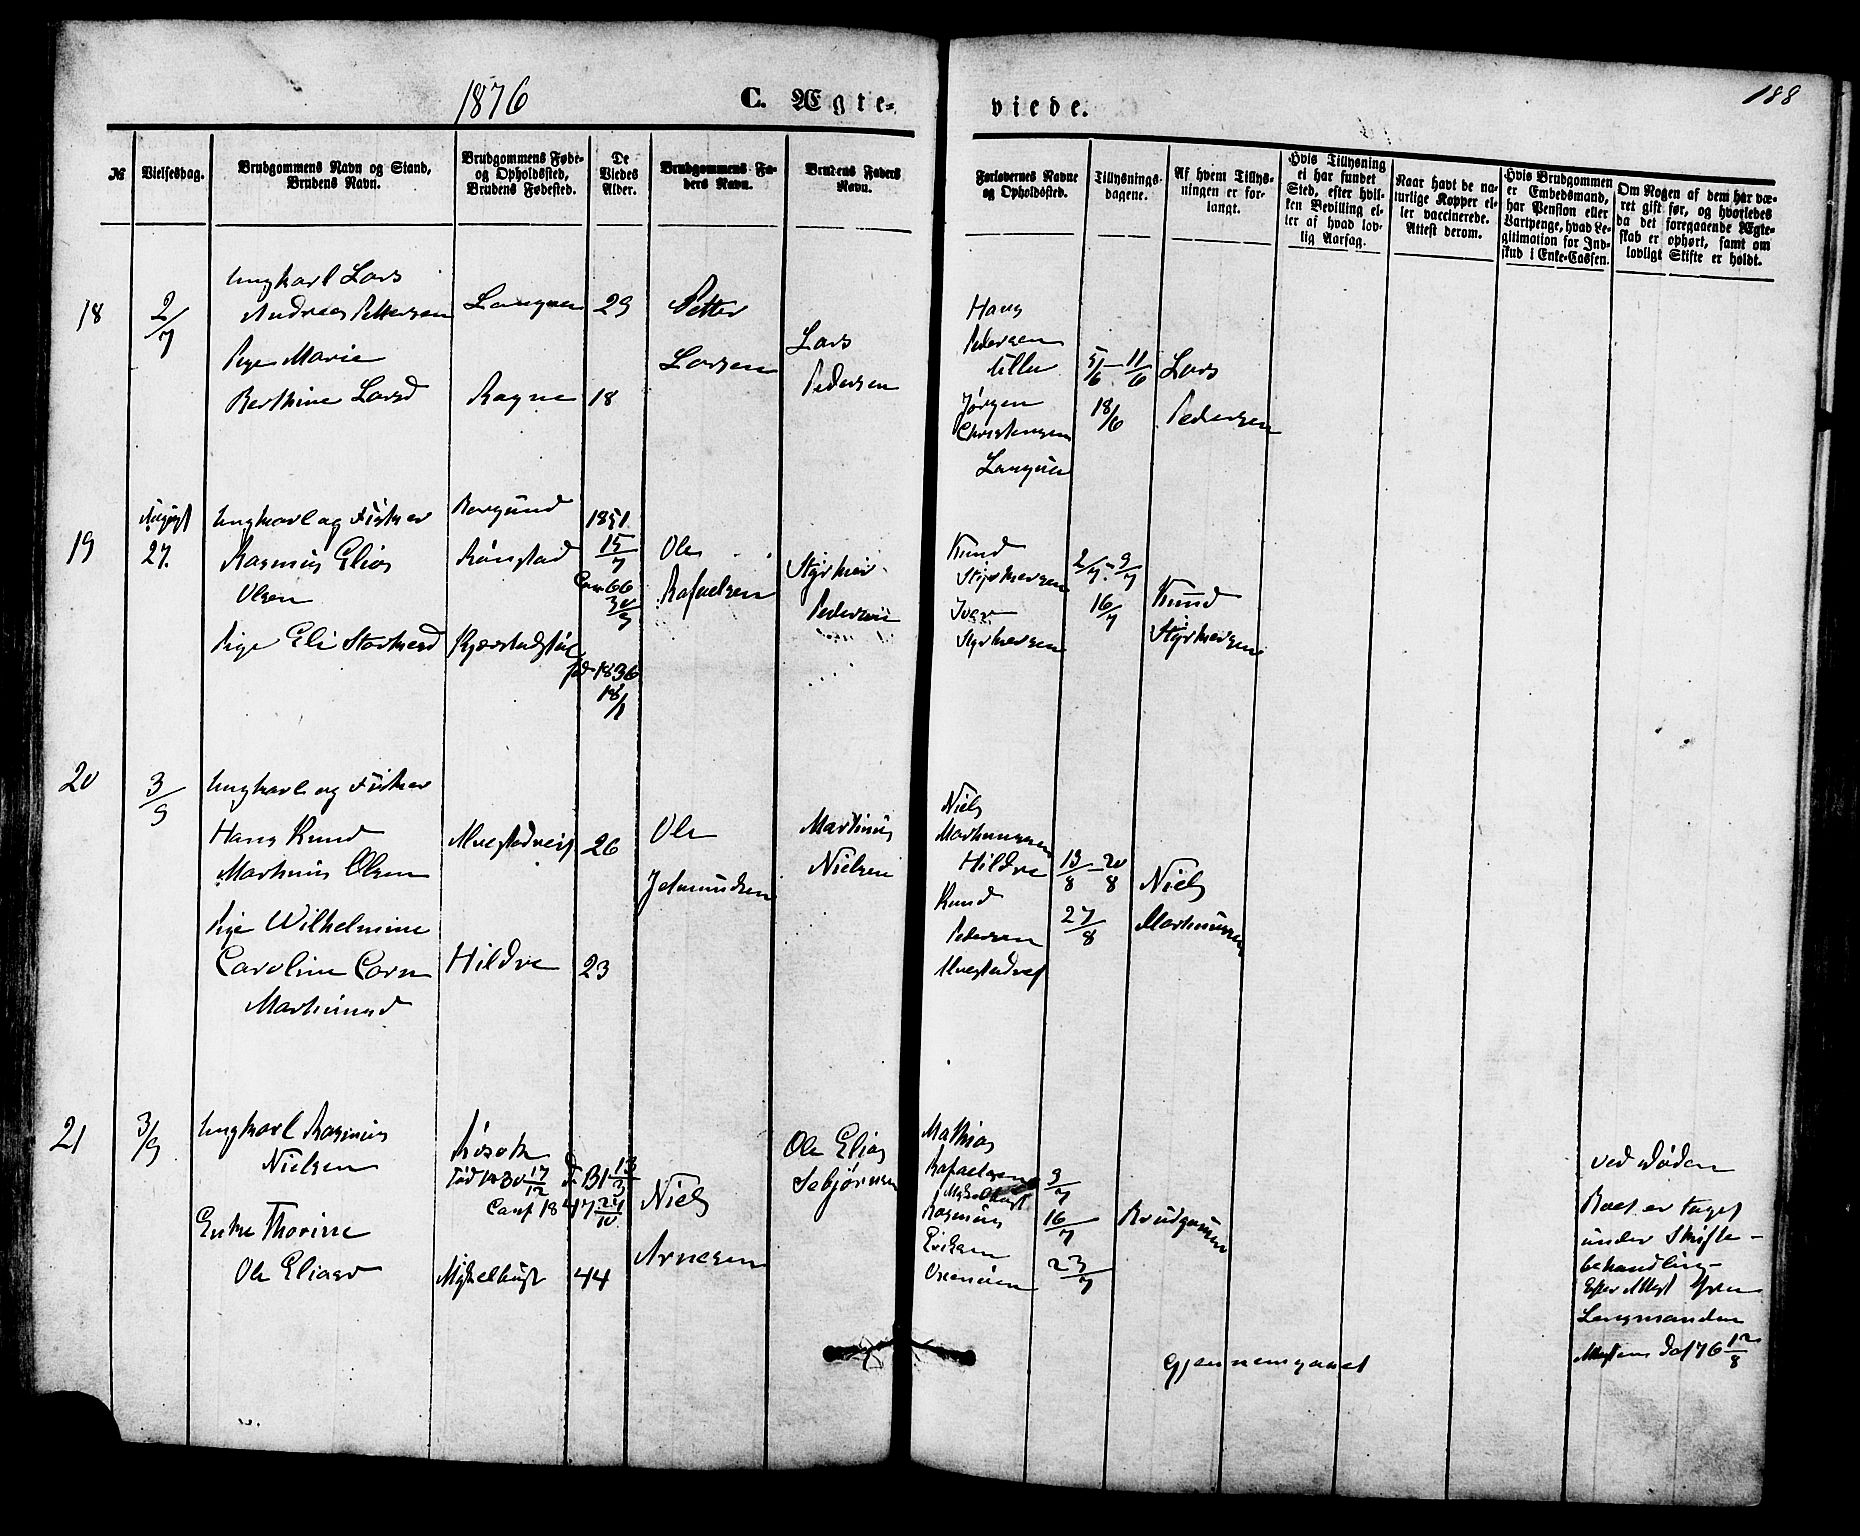 1876
C. Ægte-
viede.
188
№
Vielsesdag.
Brudgommens Navn og Stand,
Brudens Navn.
Brudgommens Føde-
og Opholdssted,
Brudens Fødested.
De
Viedes
Alder.
Brudgommens Fa-
ders Navn.
Brudens Faders
Navn.
Forlovernes Navne
og Opholdssted.
Tillysnings-
dagene.
Af hvem Tillys-
ningen er for-
langt.
Hvis Tillysning
ei har fundet
Sted, efter hvil-
ken Bevilling el-
ler af hvad lov-
lig Aarsag.
Naar havt de na-
turlige Kopper el-
ler vaccinerede.
Attest derom.
Hvis Brudgommen
er Embedsmand,
har Pension eller
Vartpenge, hvad Le-
gitimation for Ind-
skud i Enke-Cassen.
Om Nogen af dem har væ-
ret gift før, og hvorledes
da det foregaaende Ægte-
skab er ophørt, samt om
lovligt Skifte er holdt.
18
2/7
Ungkarl Lars
Andreas Pettersen
Pige Marie
Berthine Larsd
Longven
Rogne
29
18
Petter
Larsen
Lars
Pedersen
Hans
Pedersen
Ulla
Jørgen
Christensen
Longven
5/6 - 11/6
18/6
Lars
Pedersen
19
August
27.
Ungkarl og Fisker
Rasmus Elias
Olsen
Pige Eli Storkersd
Borgund
Rønstad
Kjærstadstøl
1851
15/7
Conf 66
30/9
fød 1836
18/1
Ole
Rafaelsen
Styrker
Pedersen
Knud
Styrkersen
Iver
Styrkersen
2/7 - 9/7
16/7
Knud
Styrkersen
20
3/9
Ungkarl og Fisker
Hans Knud
Martinus Olsen
Pige Wilhelmine
Caroline Corn
Martinusd
Alvestadvig
Hildre
26
23
Ole
Jetmundsen
Martinus
Nielsen
Niels
Martinussen
Hildre
Knud
Pedersen
Alvestadvig
13/8 - 20/8
27/8
Niels
Martinussen
21
3/9
Ungkarl Rasmus
Nielsen
Enke Thorine
Ole Eliasd
Røsok
Fød 1830 17/12 d 31 13/3
Conf 1847 24/10
Mykelbust
44
Niels
Arnesen
Ole Elias
Sebjørnsen
Mathias
Rafaelsen
Myklebust
Rasmus
Eriksen
9/7
16/7
23/7
Brudgommen
ved Døden
Boet er taget
under Skifte-
behandling-
Efter Attest
Lensmanden
dat 76 12/8
Gjennemgaaet